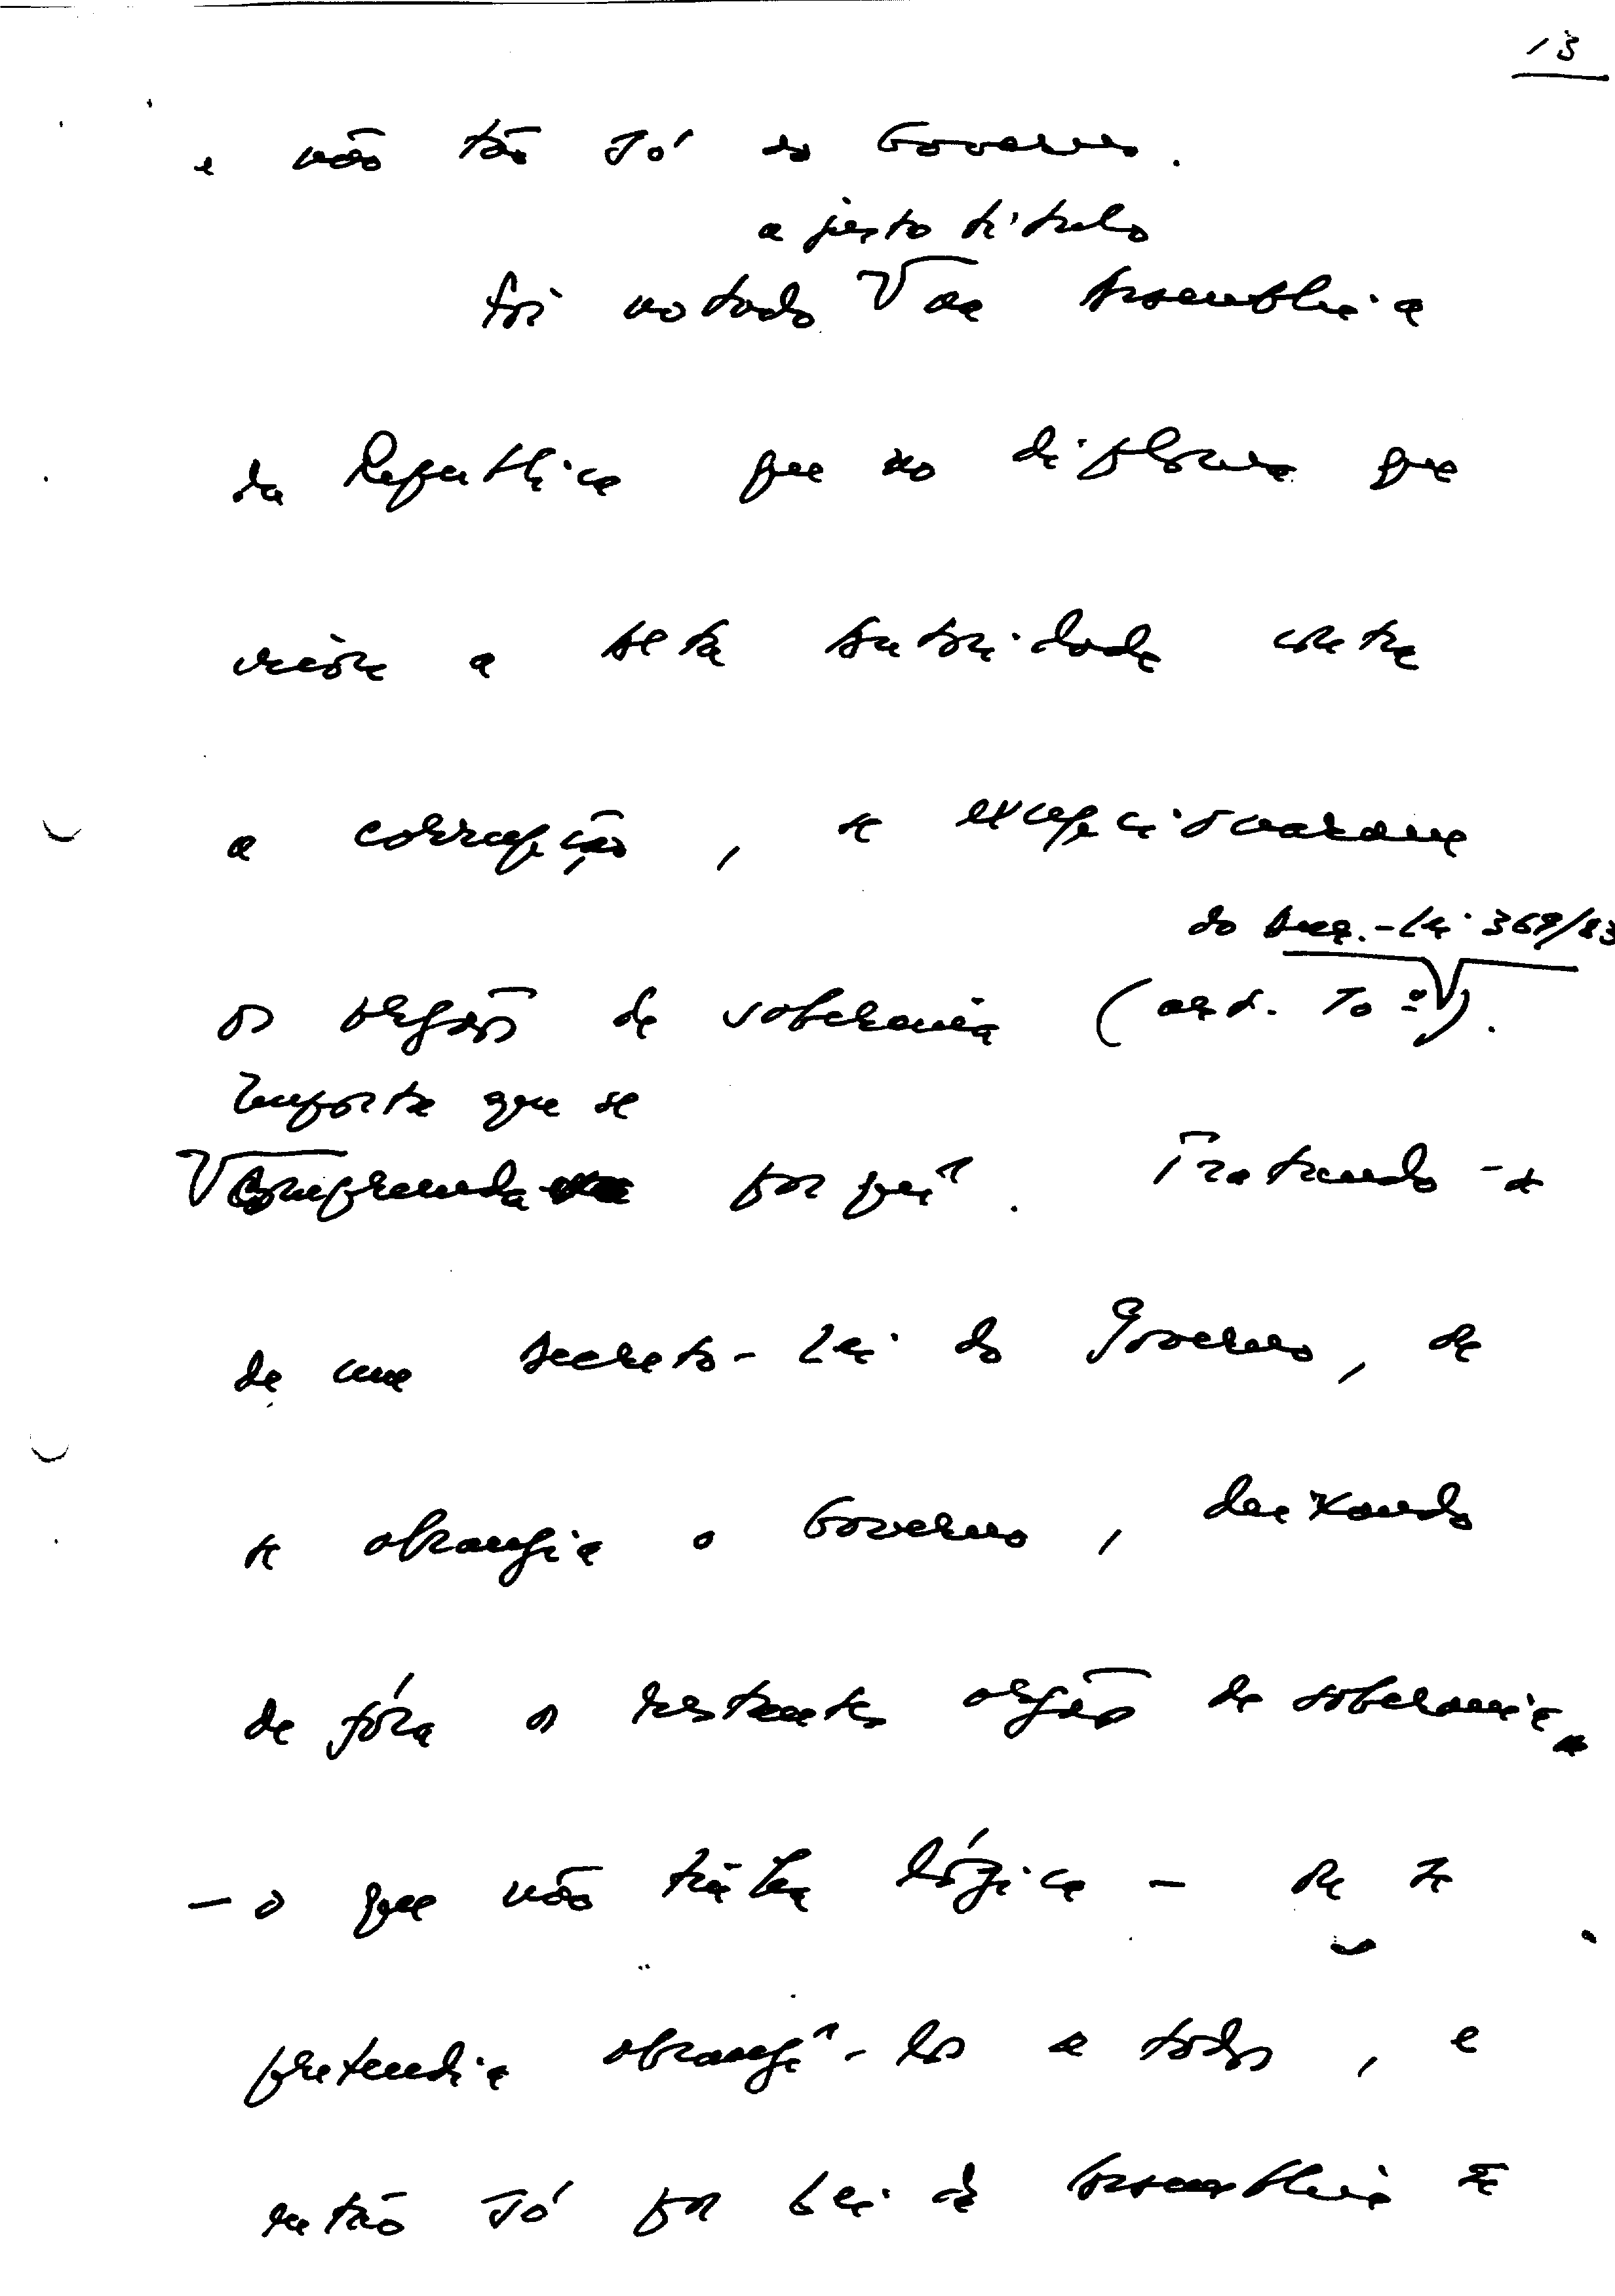 13
e não tão só do Governo.
a justo título
Foi notado V na Assembleia
da República que no diploma que
criou a Alta Autoridade contra
a corrupção, se excepcionaram
do Dec.-Lei 369/83
os orgãos de soberania (art. To º V).
Importa que se
V Compreenda porquê. Tratando-se
de um Decreto-Lei do Governo, ou
se abrangia o Governo, deixando
de fóra os restantes orgãos de soberania
- o que não tinha lógica - ou se
pretendia abrangê-los a todos, e
então só por Lei da Assembleia se